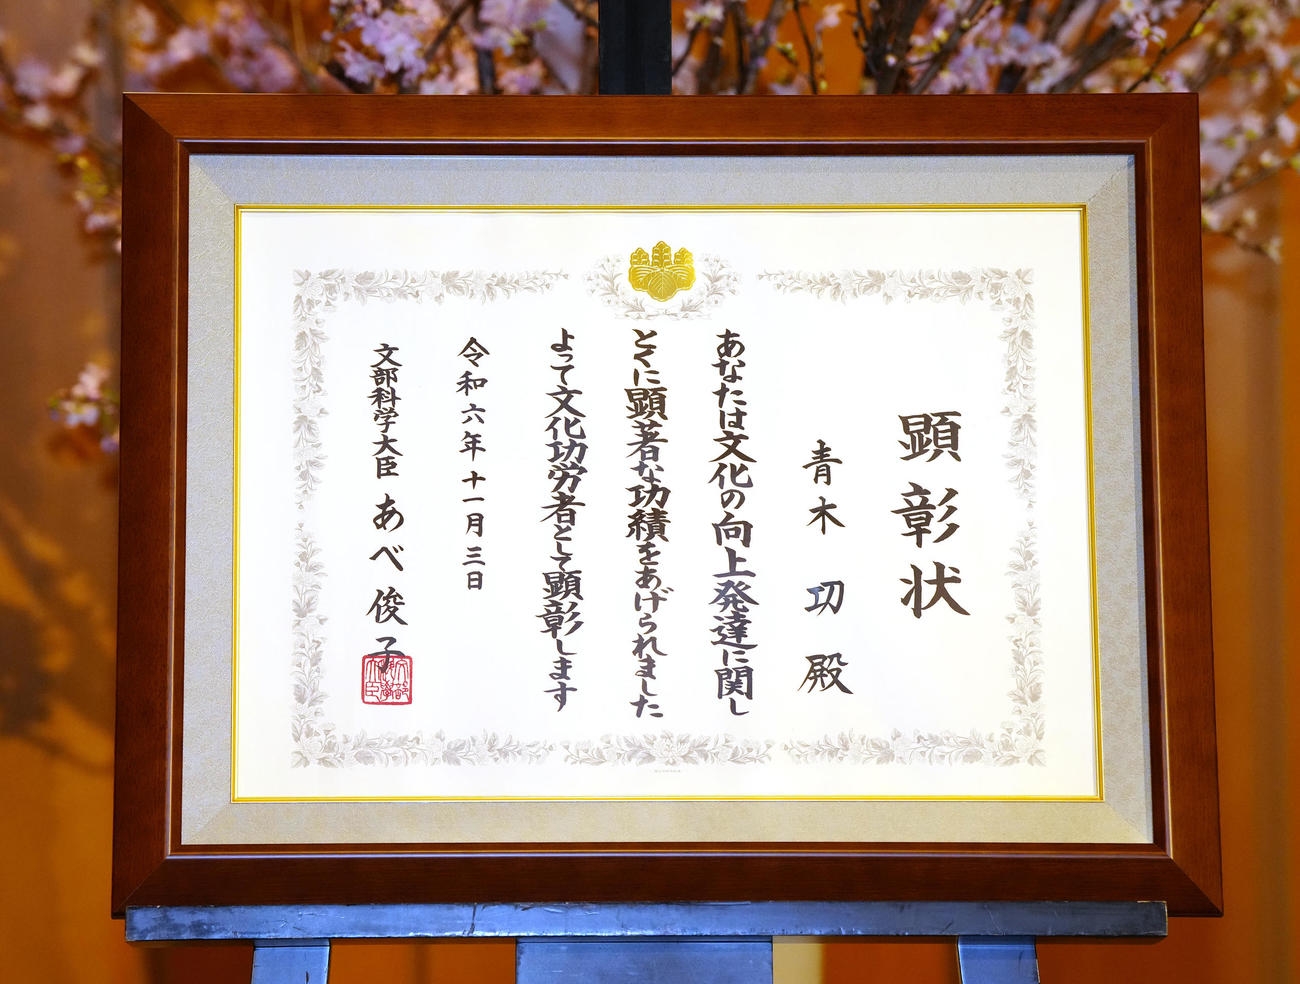 顕彰状
青木 功 殿
あなたは文化の向上発達に関し
とくに顕著な功績をあげられました
よって文化功労者として顕彰します
令和六年十一月三日
文部科学大臣 あべ 俊子